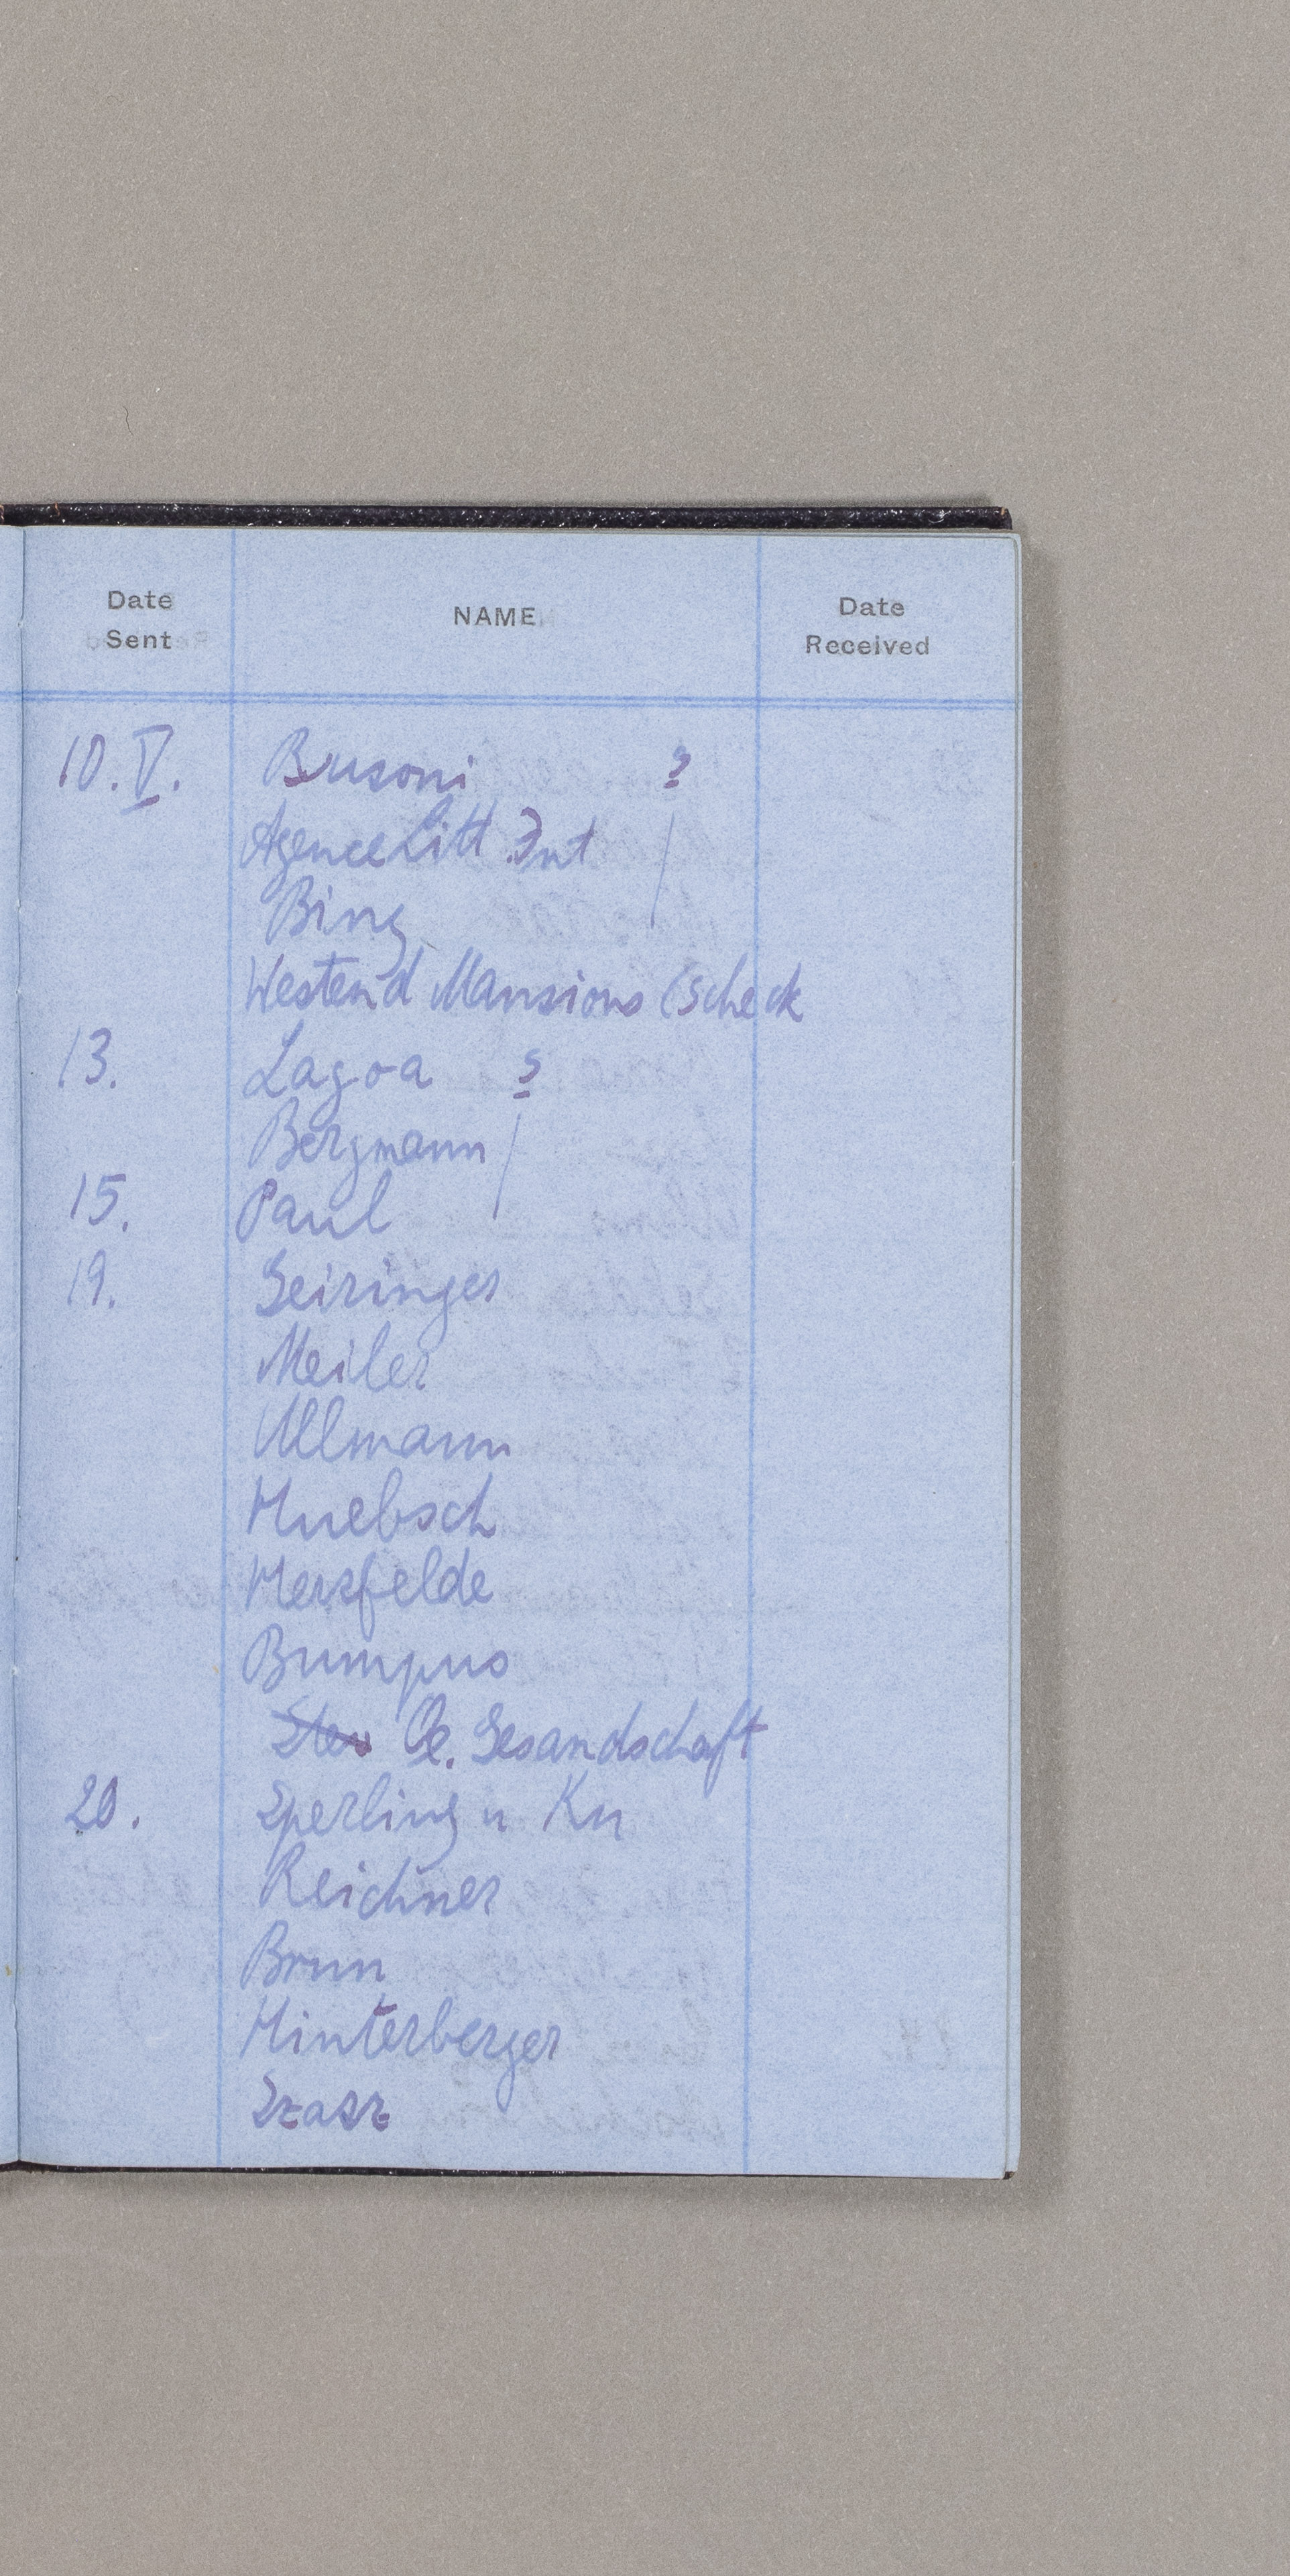 Date Sent NAME Date Received
10. V. Busoni ?
Agence Litt Int
Bing
Westend Mansions (Scheck
13. Lagoa
Bergmann
15. Paul
19. Geiringer
Meiler
Ullmann
Huebsch
Hersfelde
Bumpus
Oe. Gesandschaft
20. Sperling u Kn
Reichner
Brun
Hinterberger
Szasz